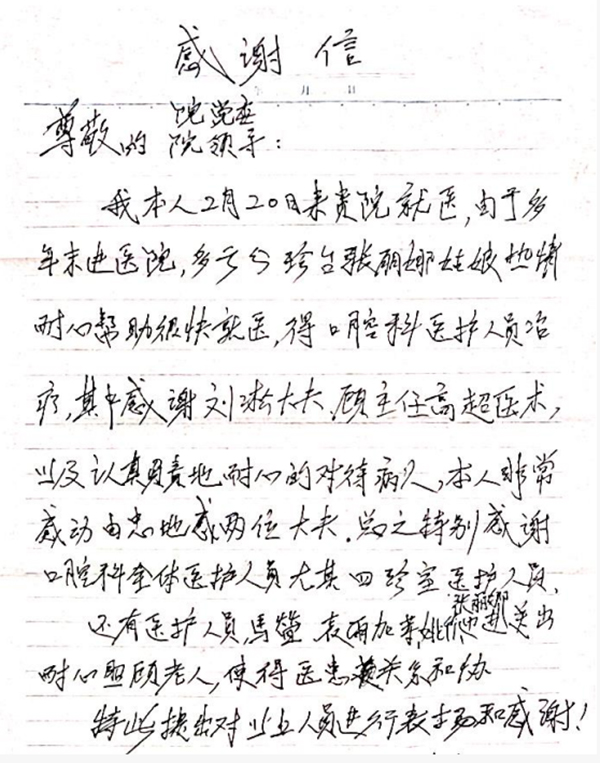 感谢信
年 月 日
院党委
尊敬的 院领导：
我本人2月20日来贵院就医,由于多
年未进医院,多亏分珍台张丽娜姑娘热情
耐心帮助很快就医,得口腔科医护人员治
疗,其中感谢刘淞大夫.顾主任高超医术,
以及认真负责地耐心的对待病人,本人非常
感动由忠地感两位大夫.总之特别感谢
口腔科全体医护人员尤其四珍室医护人员.
张丽娜
还有医护人员,马莹 袁 加 进关出
耐心照顾老人,使得医患关系和协
特此提出对以上人员进行表扬和感谢!